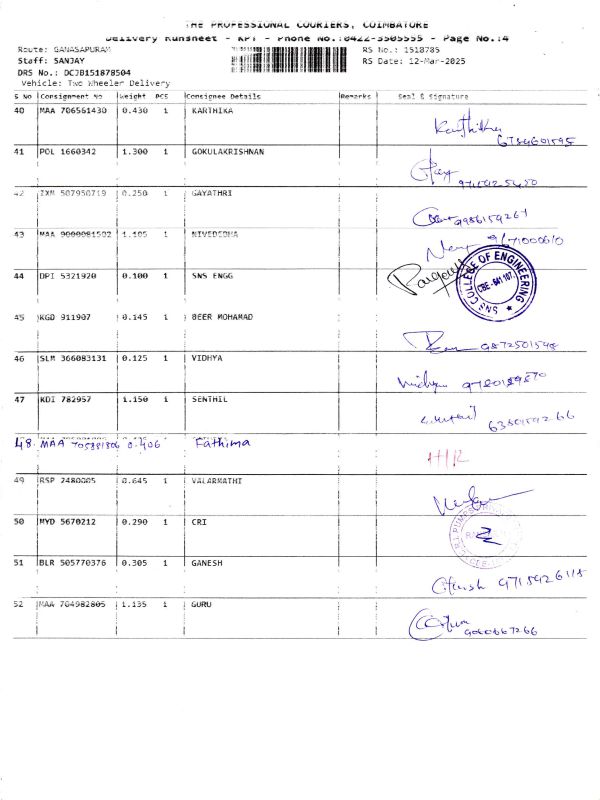 THE PROFESSIONAL COURIERS, COIMBATORE
Delivery Runsheet - KPT - Phone No.:0422-3505555 - Page No.:4
Route: GANASAPURAM RS No.: 1518785
Staff: SANJAY RS Date: 12-Mar-2025
DRS No.: DCJB151878504
Vehicle: Two Wheeler Delivery
S No Consignment No Weight PCS Consignee Details Remarks Seal & Signature
40 MAA 706561430 0.430 1 KARTHIKA Karthika
41 POL 1660342 1.300 1 GOKULAKRISHNAN
42 IXM 507950719 0.250 1 GAYATHRI
43 MAA 9000081502 1.105 1 NIVEDEDHA
44 DPI 5321920 0.100 1 SNS ENGG
SNS COLLEGE OF ENGINEERING CBE-641 107.
45 KGD 911907 0.145 1 BEER MOHAMAD 9872501548
46 SLM 366083131 0.125 1 VIDHYA Vidhya
47 KDI 782957 1.150 1 SENTHIL
48. MAA 705881806 0.406 Fathima
49 RSP 2480605 0.645 1 VALARMATHI
50 MYD 5670212 0.290 1 CRI
51 BLR 505770376 0.305 1 GANESH
52 MAA 704982805 1.135 1 GURU 9060667266